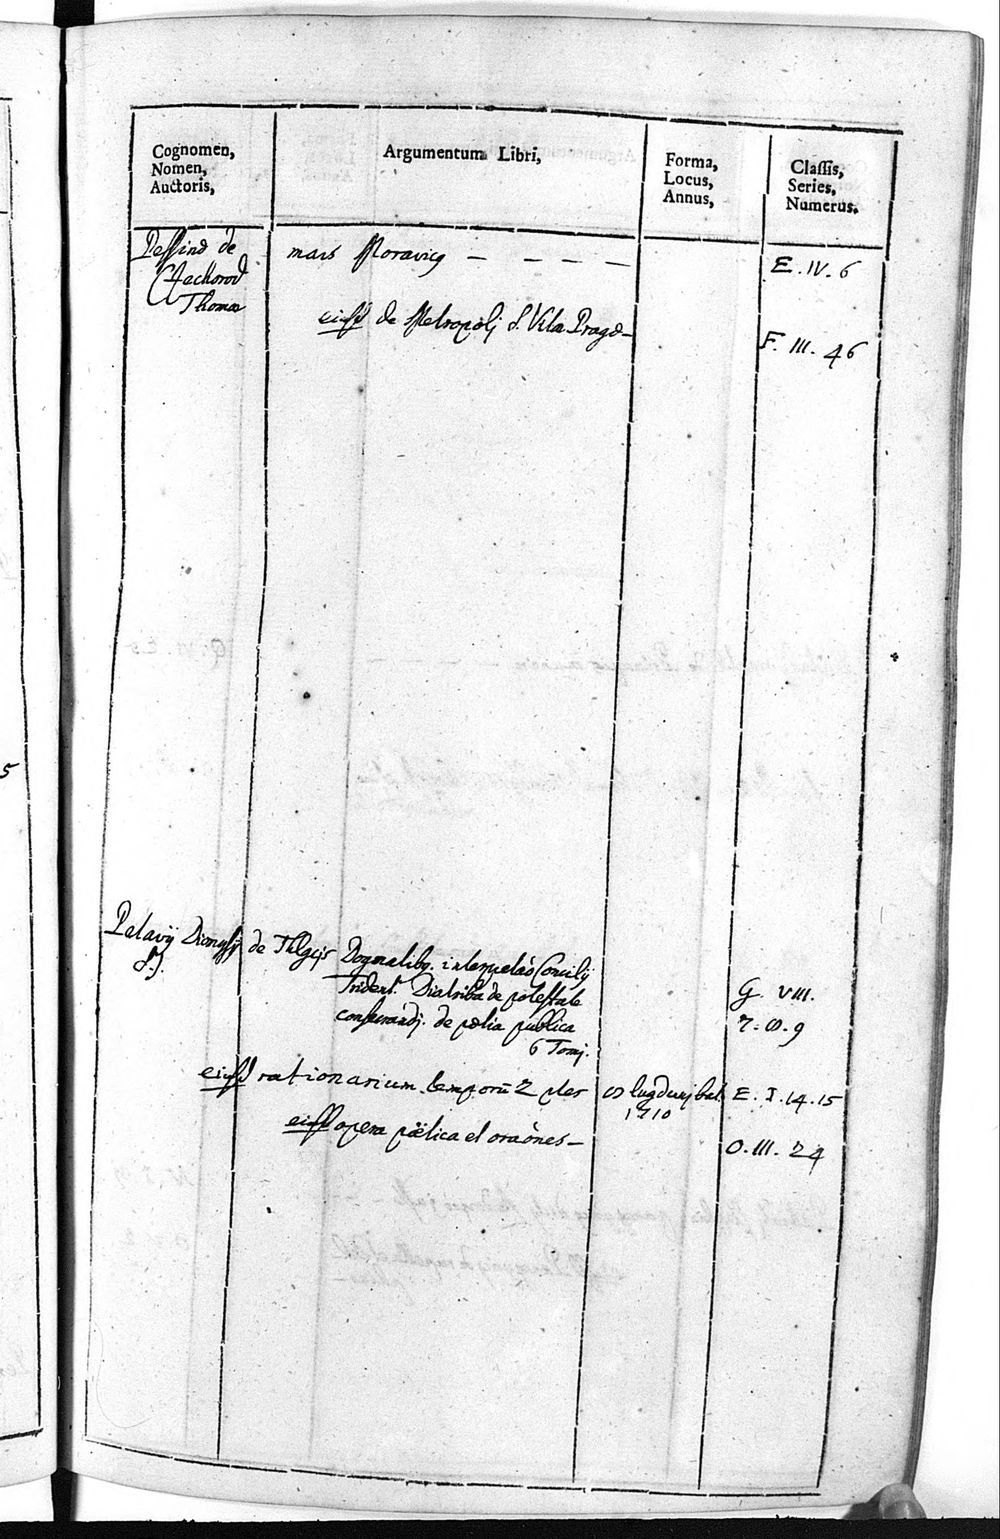 Cognomen,
Nomen,
Auctoris,
Argumentum Libri,
Forma,
Locus,
Annus,
Classis,
Series,
Numerus.
Pessina de
Czechorod
Thomae
mars Moravicg – – – –
E. IV. 6
eiusd de Metropolj S. Viti Prage –
F. III. 46
Petavij Dionysij de Thlgcis Dogmatibg. interpretaõ Concilij
S. J.
Trident. Diatriba de potestate
G. VIII.
consecrandj. de pœlia publica
7. 8. 9
6 Tomj.
eiusd rationarium temporũ 2 ptes
8 lugdunj bat.
1710
E. I. 14. 15
eiusd opera pöetica et oraónes –
O. III. 24
5